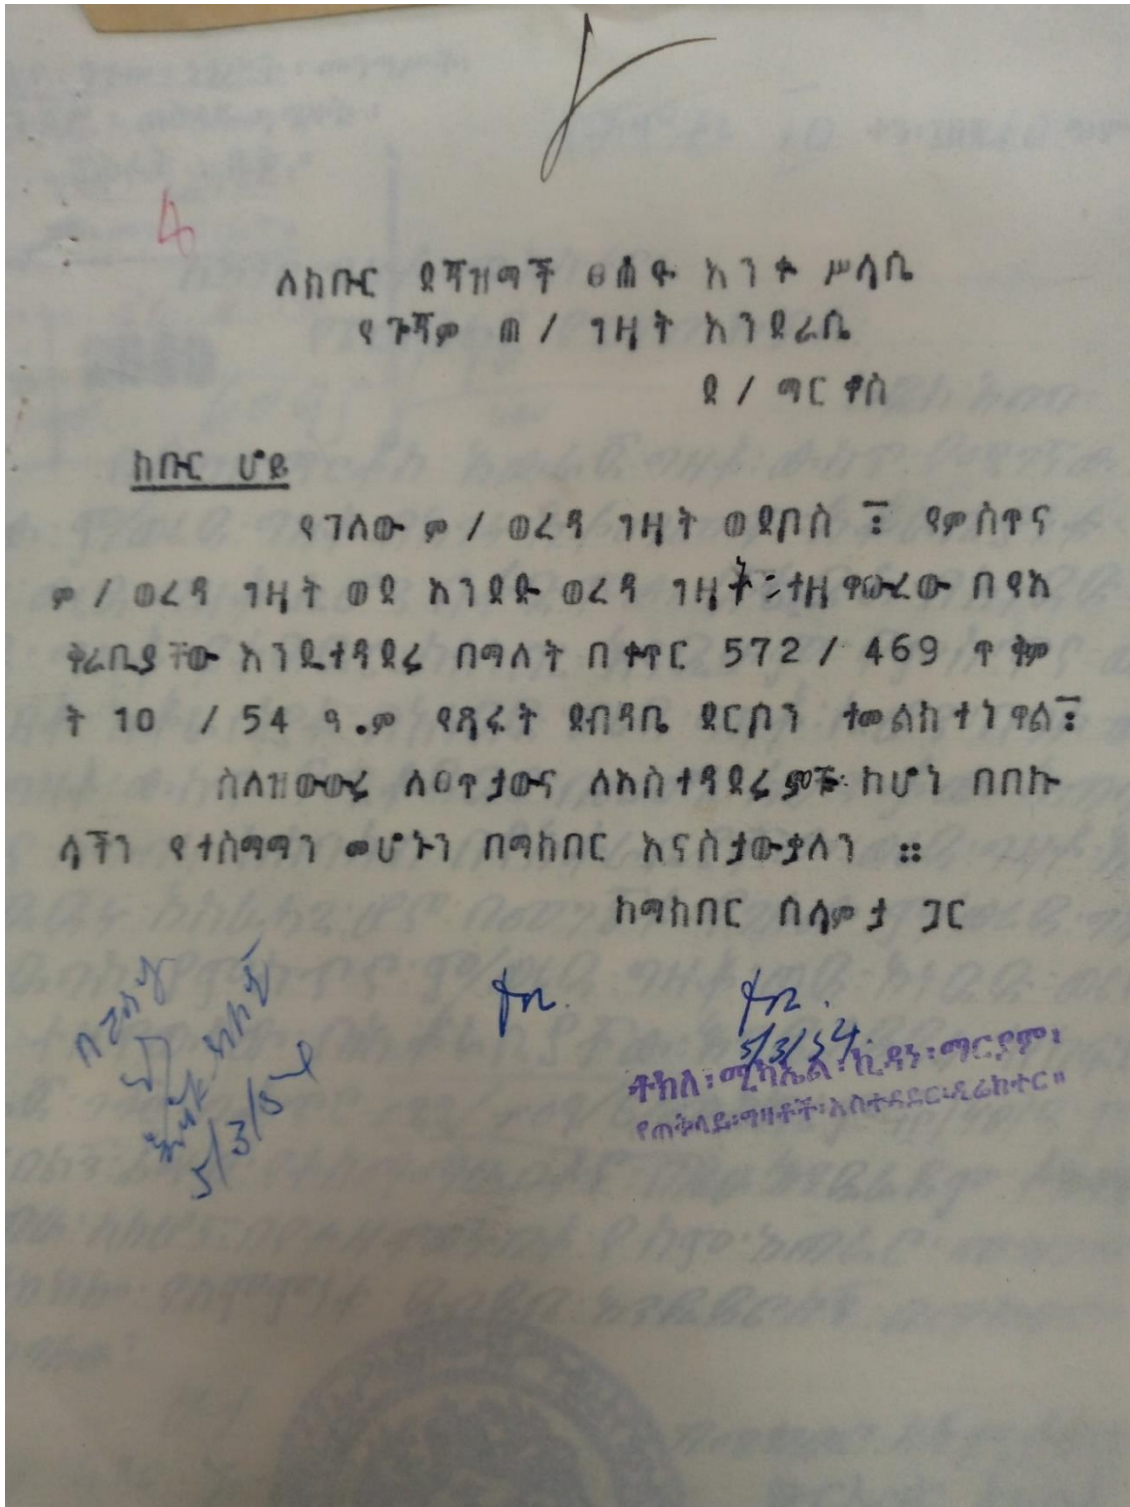 4
ለክቡር ደጃዝማች ፀሐዩ እንቁ ሥላሴ
የጎጃም ጠ / ግዛት እንደራሴ
ደ / ማርቆስ
ክቡር ሆይ
የገለው ም / ወረዳ ግዛት ወደቦስ ፤ የምስዋና
ም / ወረዳ ግዛት ወደ እንደድ ወረዳ ግዛት ተዛዋውረው በየአ
ቅራቢያቸው እንዲተዳደሩ በማለት በቀጥር 572 / 469 ጥቅም
ት 10 / 54 ዓ.ም የጻፉት ደብዳቤ ደርሶን ተመልክተነዋል ፤
ስለዝውውሩ ለፀጥታውና ለአስተዳደሩ ምቹ ከሆነ በበኩ
ላችን የተስማማን መሆኑን በማክበር እናስታውቃለን ።
ከማክበር ሰላምታ ጋር
5/3/54
ተክለ፡ሚካኤል፡ኪዳነ፡ማርያም፡
የጠቅላይ፡ግዛቶች፡አስተዳደር፡ዲሬክተር።
5/3/54